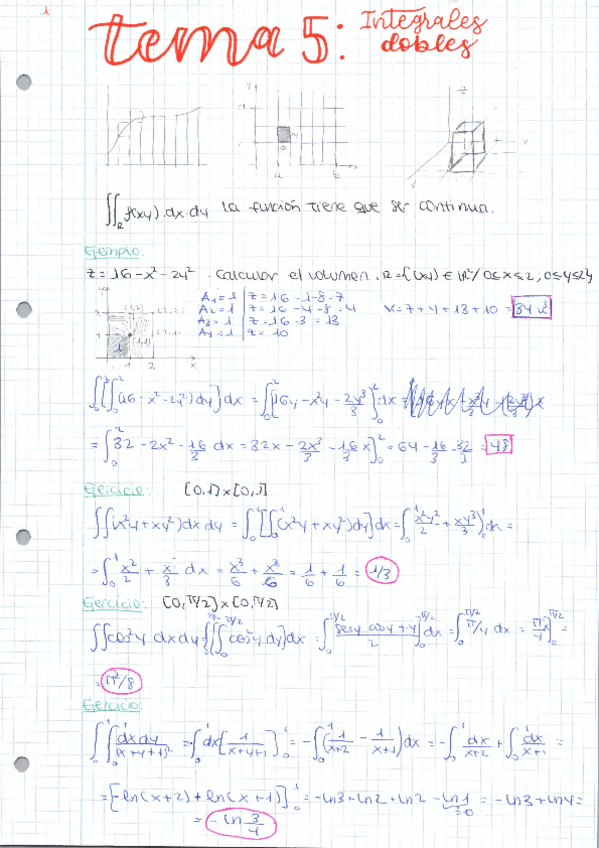 1
tema 5: Integrales dobles
∬_R f(x,y).dx.dy La función tiene que ser continua.
Ejemplo:
z = 16 - x² - 2y². Calcular el volumen. R = {(x,y) ∈ ℝ² / 0 ≤ x ≤ 2, 0 ≤ y ≤ 2}
A₁ = 1 | z = 16 - 1 - 8 = 7
A₂ = 1 | z = 16 - 4 - 8 = 4
A₃ = 1 | z = 16 - 3 = 13
A₄ = 1 | z = 10
V = 7 + 4 + 13 + 10 = 34
∫₀² [∫₀² (16 - x² - 2y²) dy] dx = ∫₀² [16y - x²y - 2y³/3]₀² dx =
= ∫₀² 32 - 2x² - 16/3 dx = 32x - 2x³/3 - 16/3 x]₀² = 64 - 16/3 - 32/3 = 48
Ejercicio: [0,1]x[0,1]
∬(x²y + xy²) dx dy = ∫₀¹ [∫₀¹ (x²y + xy²) dy] dx = ∫₀¹ (x²y²/2 + xy³/3)₀¹ dx =
= ∫₀¹ x²/2 + x/3 dx = x³/6 + x²/6 = 1/6 + 1/6 = 1/3
Ejercicio: [0, π/2] x [0, π/2]
∬cos²y dx dy = ∫₀^π/2 [∫₀^π/2 cos²y dy] dx = ∫₀^π/2 [sen y cos y + y / 2]₀^π/2 dx = ∫₀^π/2 π/4 dx = π/4]₀^π/2 =
= π²/8
Ejercicio:
∫₀¹ ∫₀¹ dx dy/(x+y+1)² = -∫₀¹ dx [1/(x+y+1)]₀¹ = -∫₀¹ (1/(x+2) - 1/(x+1)) dx = -∫₀¹ dx/(x+2) + ∫₀¹ dx/(x+1) =
= [-ln(x+2) + ln(x+1)]₀¹ = -ln3 + ln2 + ln2 - ln1 = -ln3 + ln4 =
=0
= -ln 3/4